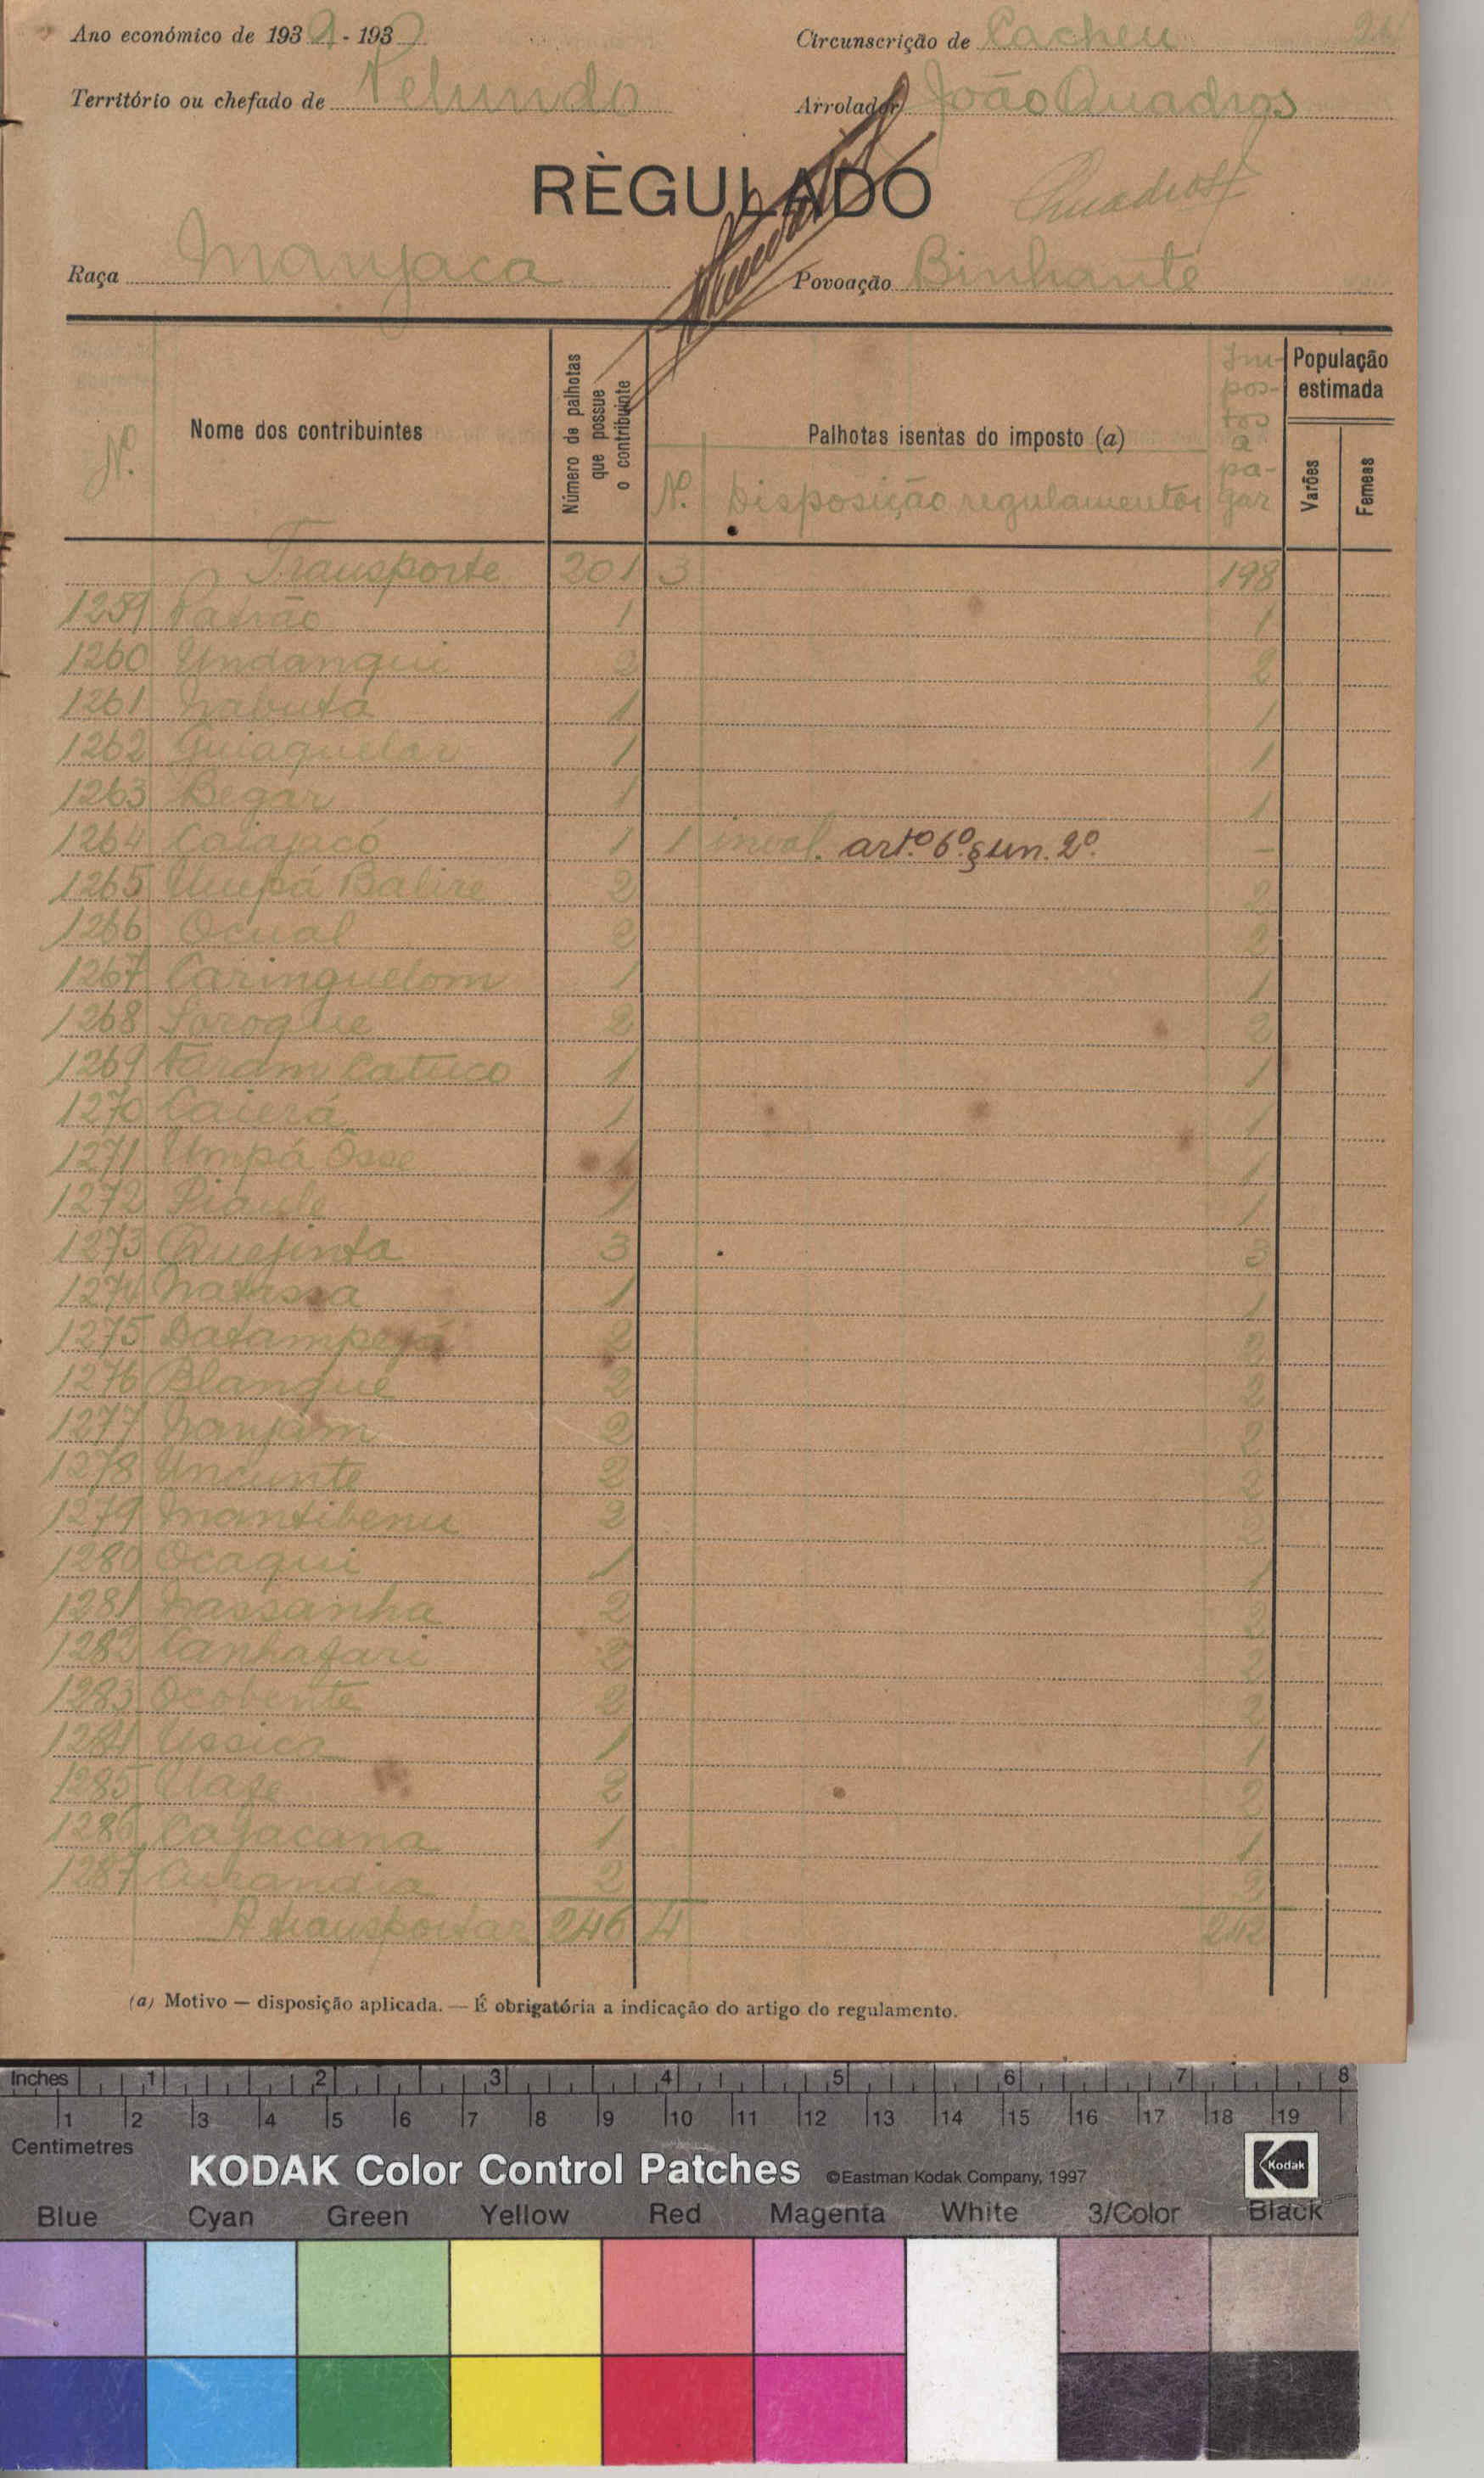 Ano económico de 193 - 193
Circunscrição de Cacheu
Território ou chefado de Pelundo
Arrolador João Quadros
RÈGULADO
Quadros
Raça Manjaca
Povoação Binhante
Nº.
Nome dos contribuintes
Número de palhotas que possue o contribuinte
Palhotas isentas do imposto (a)
Nº. Disposição regulamentar
Impostos a pagar
População estimada
Varões
Femeas
Transporte 201 3 198
1259 Patrão 1 1
1260 Undanqui 2 2
1261 Nabuta 1 1
1262 Quiaquelar 1 1
1263 Begar 1 1
1264 Caiajacó 1 1 inval. artº. 6º. § un. 2º. -
1265 Umpá Balire 2 2
1266 Ocual 2 2
1267 Caringuelom 1 1
1268 Saroque 2 2
1269 Faram Catuco 1 1
1270 Caierá 1 1
1271 Umpá Osse 1 1
1272 Piaule 1 1
1273 Quejinta 3 3
1274 Natissa 1 1
1275 2 2
1276 Blanque 2 2
1277 Nanjam 2 2
1278 Uncunte 2 2
1279 Mantibenu 2 2
1280 Ocaqui 1 1
1281 Nassanha 2 2
1282 Canhafari 2 2
1283 Ocobente 2 2
1284 Ussica 1 1
1285 Uafe 2 2
1286 Cajacana 1 1
1287 2 2
A transportar 246 4 242
(a) Motivo — disposição aplicada. — É obrigatória a indicação do artigo do regulamento.
Inches 1 2 3 4 5 6 7 8
1 2 3 4 5 6 7 8 9 10 11 12 13 14 15 16 17 18 19
Centimetres
KODAK Color Control Patches ©Eastman Kodak Company, 1997 Kodak
Blue Cyan Green Yellow Red Magenta White 3/Color Black